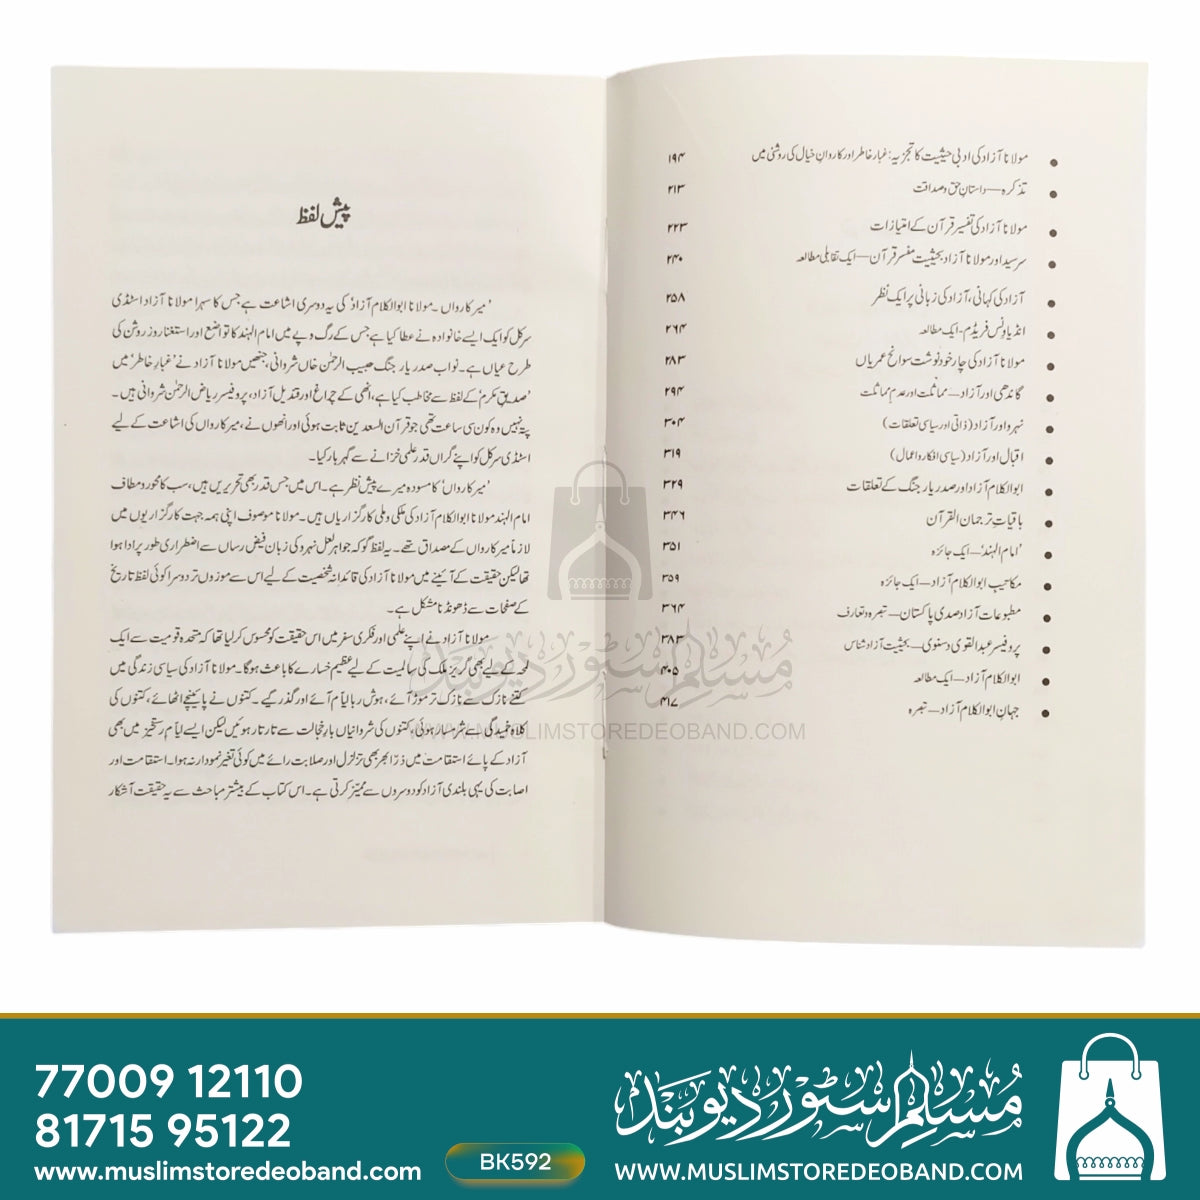 مولانا آزاد کی ادبی حیثیت کا تجزیہ: غبار خاطر اور کاروانِ خیال کی روشنی میں ۱۹۴
تذکرہ — داستانِ حق و صداقت ۲۱۳
مولانا آزاد کی تفسیر قرآن کے امتیازات ۲۲۳
سرسید اور مولانا آزاد بحیثیت مفسر قرآن — ایک تقابلی مطالعہ ۲۴۰
آزاد کی کہانی، آزاد کی زبانی پر ایک نظر ۲۵۸
انڈیا ونس فریڈم - ایک مطالعہ ۲۶۴
مولانا آزاد کی چار خود نوشت سوانح عمریاں ۲۸۳
گاندھی اور آزاد — مماثلت اور عدم مماثلت ۲۹۴
نہرو اور آزاد (ذاتی اور سیاسی تعلقات) ۳۰۴
اقبال اور آزاد (سیاسی افکار و اعمال) ۳۱۹
ابوالکلام آزاد اور صدر یار جنگ کے تعلقات ۳۲۹
باقیاتِ ترجمان القرآن ۳۴۶
'امام الہند' — ایک جائزہ ۳۵۱
مکاتیب ابوالکلام آزاد — ایک جائزہ ۳۵۹
مطبوعات آزاد صدی پاکستان — تبصرہ و تعارف ۳۶۴
پروفیسر عبدالقوی دسنوی — بحیثیت آزاد شناس ۳۸۳
ابوالکلام آزاد — ایک مطالعہ ۴۰۵
جہانِ ابوالکلام آزاد — تبصرہ ۴۱۷
پیش لفظ
'میر کارواں۔ مولانا ابوالکلام آزاد' کی یہ دوسری اشاعت ہے جس کا سہرا مولانا آزاد اسٹڈی
سرکل کو ایک ایسے خانوادہ نے عطا کیا ہے جس کے رگ و پے میں امام الہند کا تواضع اور استغنا روز روشن کی
طرح عیاں ہے۔ نواب صدر یار جنگ حبیب الرحمٰن خاں شروانی، جنھیں مولانا آزاد نے 'غبارِ خاطر' میں
'صدیقِ مکرم' کے لفظ سے مخاطب کیا ہے، انھی کے چراغ اور قندیل آزاد، پروفیسر ریاض الرحمٰن شروانی ہیں۔
پتہ نہیں وہ کون سی ساعت تھی جو قرآن السعدین ثابت ہوئی اور انھوں نے، میر کارواں کی اشاعت کے لیے
اسٹڈی سرکل کو اپنے گراں قدر علمی خزانے سے گہربار کیا۔
'میر کارواں' کا مسودہ میرے پیش نظر ہے۔ اس میں جس قدر بھی تحریریں ہیں، سب کا محور و مطاف
امام الہند مولانا ابوالکلام آزاد کی ملکی و ملی کارگزاریاں ہیں۔ مولانا موصوف اپنی ہمہ جہت کارگزاریوں میں
لازماً میر کارواں کے مصداق تھے۔ یہ لفظ گو کہ جواہر لعل نہرو کی زبان فیض رساں سے اضطراری طور پر ادا ہوا
تھا لیکن حقیقت کے آئینے میں مولانا آزاد کی قائدانہ شخصیت کے لیے اس سے موزوں تر دوسرا کوئی لفظ تاریخ
کے صفحات سے ڈھونڈنا مشکل ہے۔
مولانا آزاد نے اپنے علمی اور فکری سفر میں اس حقیقت کو محسوس کر لیا تھا کہ متحدہ قومیت سے ایک
لمحہ کے لیے بھی گریز ملک کی سالمیت کے لیے عظیم خسارے کا باعث ہوگا۔ مولانا آزاد کی سیاسی زندگی میں
کتنے نازک سے نازک تر موڑ آئے، ہوش ربا ایام آئے اور گذر گیے۔ کتنوں نے پائینچے اٹھائے، کتنوں کی
کلاہ خمیدگی سے شرمسار ہوئی، کتنوں کی شروانیاں بارِ خجالت سے تار تار ہوئیں لیکن ایسے ایام رستخیز میں بھی
آزاد کے پائے استقامت میں ذرّا بھر بھی تزلزل اور صلابت رائے میں کوئی تغیر نمودار نہ ہوا۔ استقامت اور
اصابت کی یہی بلندی آزاد کو دوسروں سے ممیّز کرتی ہے۔ اس کتاب کے بیشتر مباحث سے یہ حقیقت آشکار
مسلم سٹور دیوبند
WWW.MUSLIMSTOREDEOBAND.COM
77009 12110
81715 95122
www.muslimstoredeoband.com
BK592
مسلم سٹور دیوبند
WWW.MUSLIMSTOREDEOBAND.COM